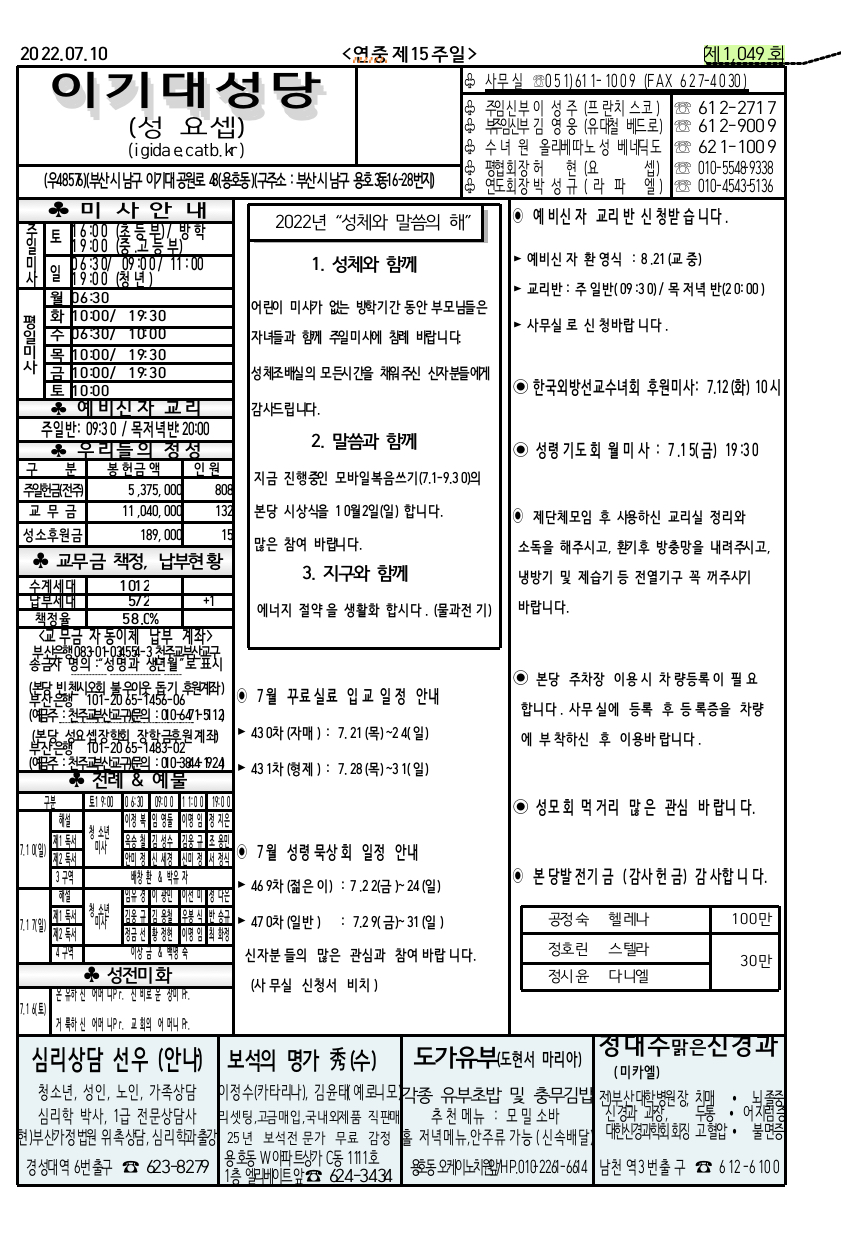 2022.07.10
<연중 제15주일>
제1,049 회
이기대성당
(성 요셉)
(igidae.catb.kr)
(우48576)(부산시 남구 이기대 공원로 48(용호동)(구주소 : 부산시 남구 용호3동16-28번지)
♧ 사무실 ☏051)611-1009 (FAX 627-4030)
♧ 주임신부 이 성 주 (프란치스코) ☏ 612-2717
♧ 부주임신부 김 영 웅 (유대철 베드로) ☏ 612-9009
♧ 수 녀 원 올리베따노 성 베네딕도 ☏ 621-1009
♧ 평협회장 허 현 (요 셉) ☏ 010-5548-9338
♧ 연도회장 박 성 규 ( 라 파 엘 ) ☏ 010-4543-5136
♣ 미 사 안 내
주일미사
토 16:00 (초등부)/ 방학
19:00 (중.고등부)
일 06:30/ 09:00/ 11:00
19:00 (청년)
평일미사
월 06:30
화 10:00/ 19:30
수 06:30/ 10:00
목 10:00/ 19:30
금 10:00/ 19:30
토 10:00
♣ 예비신자 교리
주일반: 09:30 / 목저녁반: 20:00
♣ 우리들의 정성
구 분 봉헌금액 인원
주일헌금(전주) 5,375,000 808
교 무 금 11,040,000 132
성소후원금 189,000 15
♣ 교무금 책정, 납부현황
수계세대 1012
납부세대 572 +1
책정율 58.0%
<교무금 자동이체 납부 계좌>
부산은행 083-01-034554-3 천주교부산교구
송금자 명의 :“성명과 생년월”로 표시
(본당 빈첸시오회 불우이웃 돕기 후원계좌)
부산은행 101-2065-1456-06
(예금주 : 천주교부산교구)(문의 : 010-6471-5112)
(본당 성요셉장학회 장학금후원계좌)
부산은행 101-2065-1483-02
(예금주 : 천주교부산교구)(문의 : 010-3844-1924)
♣ 전례 & 예물
구분 토19:00 06:30 09:00 11:00 19:00
7.10(일)
해설 청소년 미사 이정복 임영들 이명임 정지은
제1독서 옥승철 김성수 김웅규 조용민
제2독서 안미정 신세경 신미정 서정식
3구역 배창환 & 박유자
7.17(일)
해설 청소년 미사 임유경 이광민 이선미 정다운
제1독서 김웅규 김용철 우봉식 반승규
제2독서 정금선 황정현 이명임 최화정
4구역 이상금 & 백명숙
♣ 성전미화
7.16(토)
온유하신 어머니Pr. 신비로운 장미 Pr.
거룩하신 어머니Pr. 교회의 어머니 Pr.
2022년 “성체와 말씀의 해”
1. 성체와 함께
어린이 미사가 없는 방학기간 동안 부모님들은
자녀들과 함께 주일미사에 참례 바랍니다.
성체조배실의 모든시간을 채워주신 신자분들에게
감사드립니다.
2. 말씀과 함께
지금 진행중인 모바일복음쓰기(7.1~9.30)의
본당 시상식을 10월2일(일) 합니다.
많은 참여 바랍니다.
3. 지구와 함께
에너지 절약을 생활화 합시다. (물과전기)
◉ 7월 꾸르실료 입교 일정 안내
► 430차(자매) : 7.21(목)~24(일)
► 431차(형제) : 7.28(목)~31(일)
◉ 7월 성령묵상회 일정 안내
► 469차(젊은이) : 7.22(금)~24(일)
► 470차(일반) : 7.29(금)~31(일)
신자분들의 많은 관심과 참여 바랍니다.
(사무실 신청서 비치)
◉ 예비신자 교리반 신청받습니다.
► 예비신자 환영식 : 8.21(교중)
► 교리반 : 주일반(09:30)/ 목저녁반(20:00)
► 사무실로 신청바랍니다.
◉ 한국외방선교수녀회 후원미사: 7.12(화) 10시
◉ 성령기도회 월미사 : 7.15(금) 19:30
◉ 제단체모임 후 사용하신 교리실 정리와
소독을 해주시고, 환기후 방충망을 내려주시고,
냉방기 및 제습기 등 전열기구 꼭 꺼주시기
바랍니다.
◉ 본당 주차장 이용시 차량등록이 필요
합니다. 사무실에 등록 후 등록증을 차량
에 부착하신 후 이용바랍니다.
◉ 성모회 먹거리 많은 관심 바랍니다.
◉ 본당발전기금 (감사헌금) 감사합니다.
공정숙 헬레나 100만
정호린 스텔라 30만
정시윤 다니엘
심리상담 선우 (안나)
청소년, 성인, 노인, 가족상담
심리학 박사, 1급 전문상담사
현)부산가정법원 위촉상담, 심리학과 출강
경성대역 6번출구 ☎ 623-8279
보석의 명가 秀(수)
이정수(카타리나), 김윤태(예로니모)
리셋팅,고금매입,국내외제품 직판매
25년 보석전문가 무료 감정
용호동 W아파트상가 C동 1111호
1층 엘리베이트 앞 ☎ 624-3434
도가유부(도현서 마리아)
각종 유부초밥 및 충무김밥
추천메뉴 : 모밀소바
홀 저녁메뉴,안주류 가능 (신속배달)
용호동 오케이노치원앞/HP.010-2261-6614
정대수맑은신경과
(미카엘)
전)부산대학병원장 치매 • 뇌졸중
신경과 과장, 두통 • 어지럼증
대한신경과학회 회장 고혈압 • 불면증
남천역3번출구 ☎ 612-6100